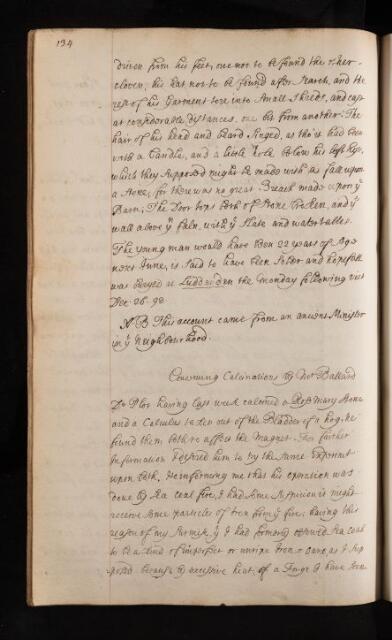 134
driven from his feet, one not to be found the other
cloven, his hat not to be found after search, and the
rest of his Garment tore into Small Shreds, and cast
at considerable distances, one bit from another: The
hair of his head and Beard Singed, as tho' it had been
with a Candle, and a little hole below his left Eye,
which they supposed might be made with his fall upon
a stone, for there was no great Breach made upon ye
Barn; The Door tops both of stone broken, and ye
wall above ye faln, with ye Slate and watertables.
The young man would have been 22 years of Age
next June, is said to have been sober and hopefull
was buryed at Luddenden the Monday following viz.
Dec. 26. 98.
N B This account came from an ancient Minister
in ye Neighbourhood.
Concerning Calcinations by Mr Ballard
Dr Plot having last week calcined a Rosemary Stone
and a Calculus taken out of the Bladder of a hog, he
found them both to affect the Magnet. For further
Information I desired him to try the same Experiment
upon both, he informing me that his operation was
done by Sea coal fire, I had some Suspicion it might
receive some particles of Iron from ye fire; having this
reason of my Surmise, yt I had formerly observed Sea coal
to be a kind of imperfect or unripe Iron Oare, as I sup
posed because by excessive heat of a Forge I have seen